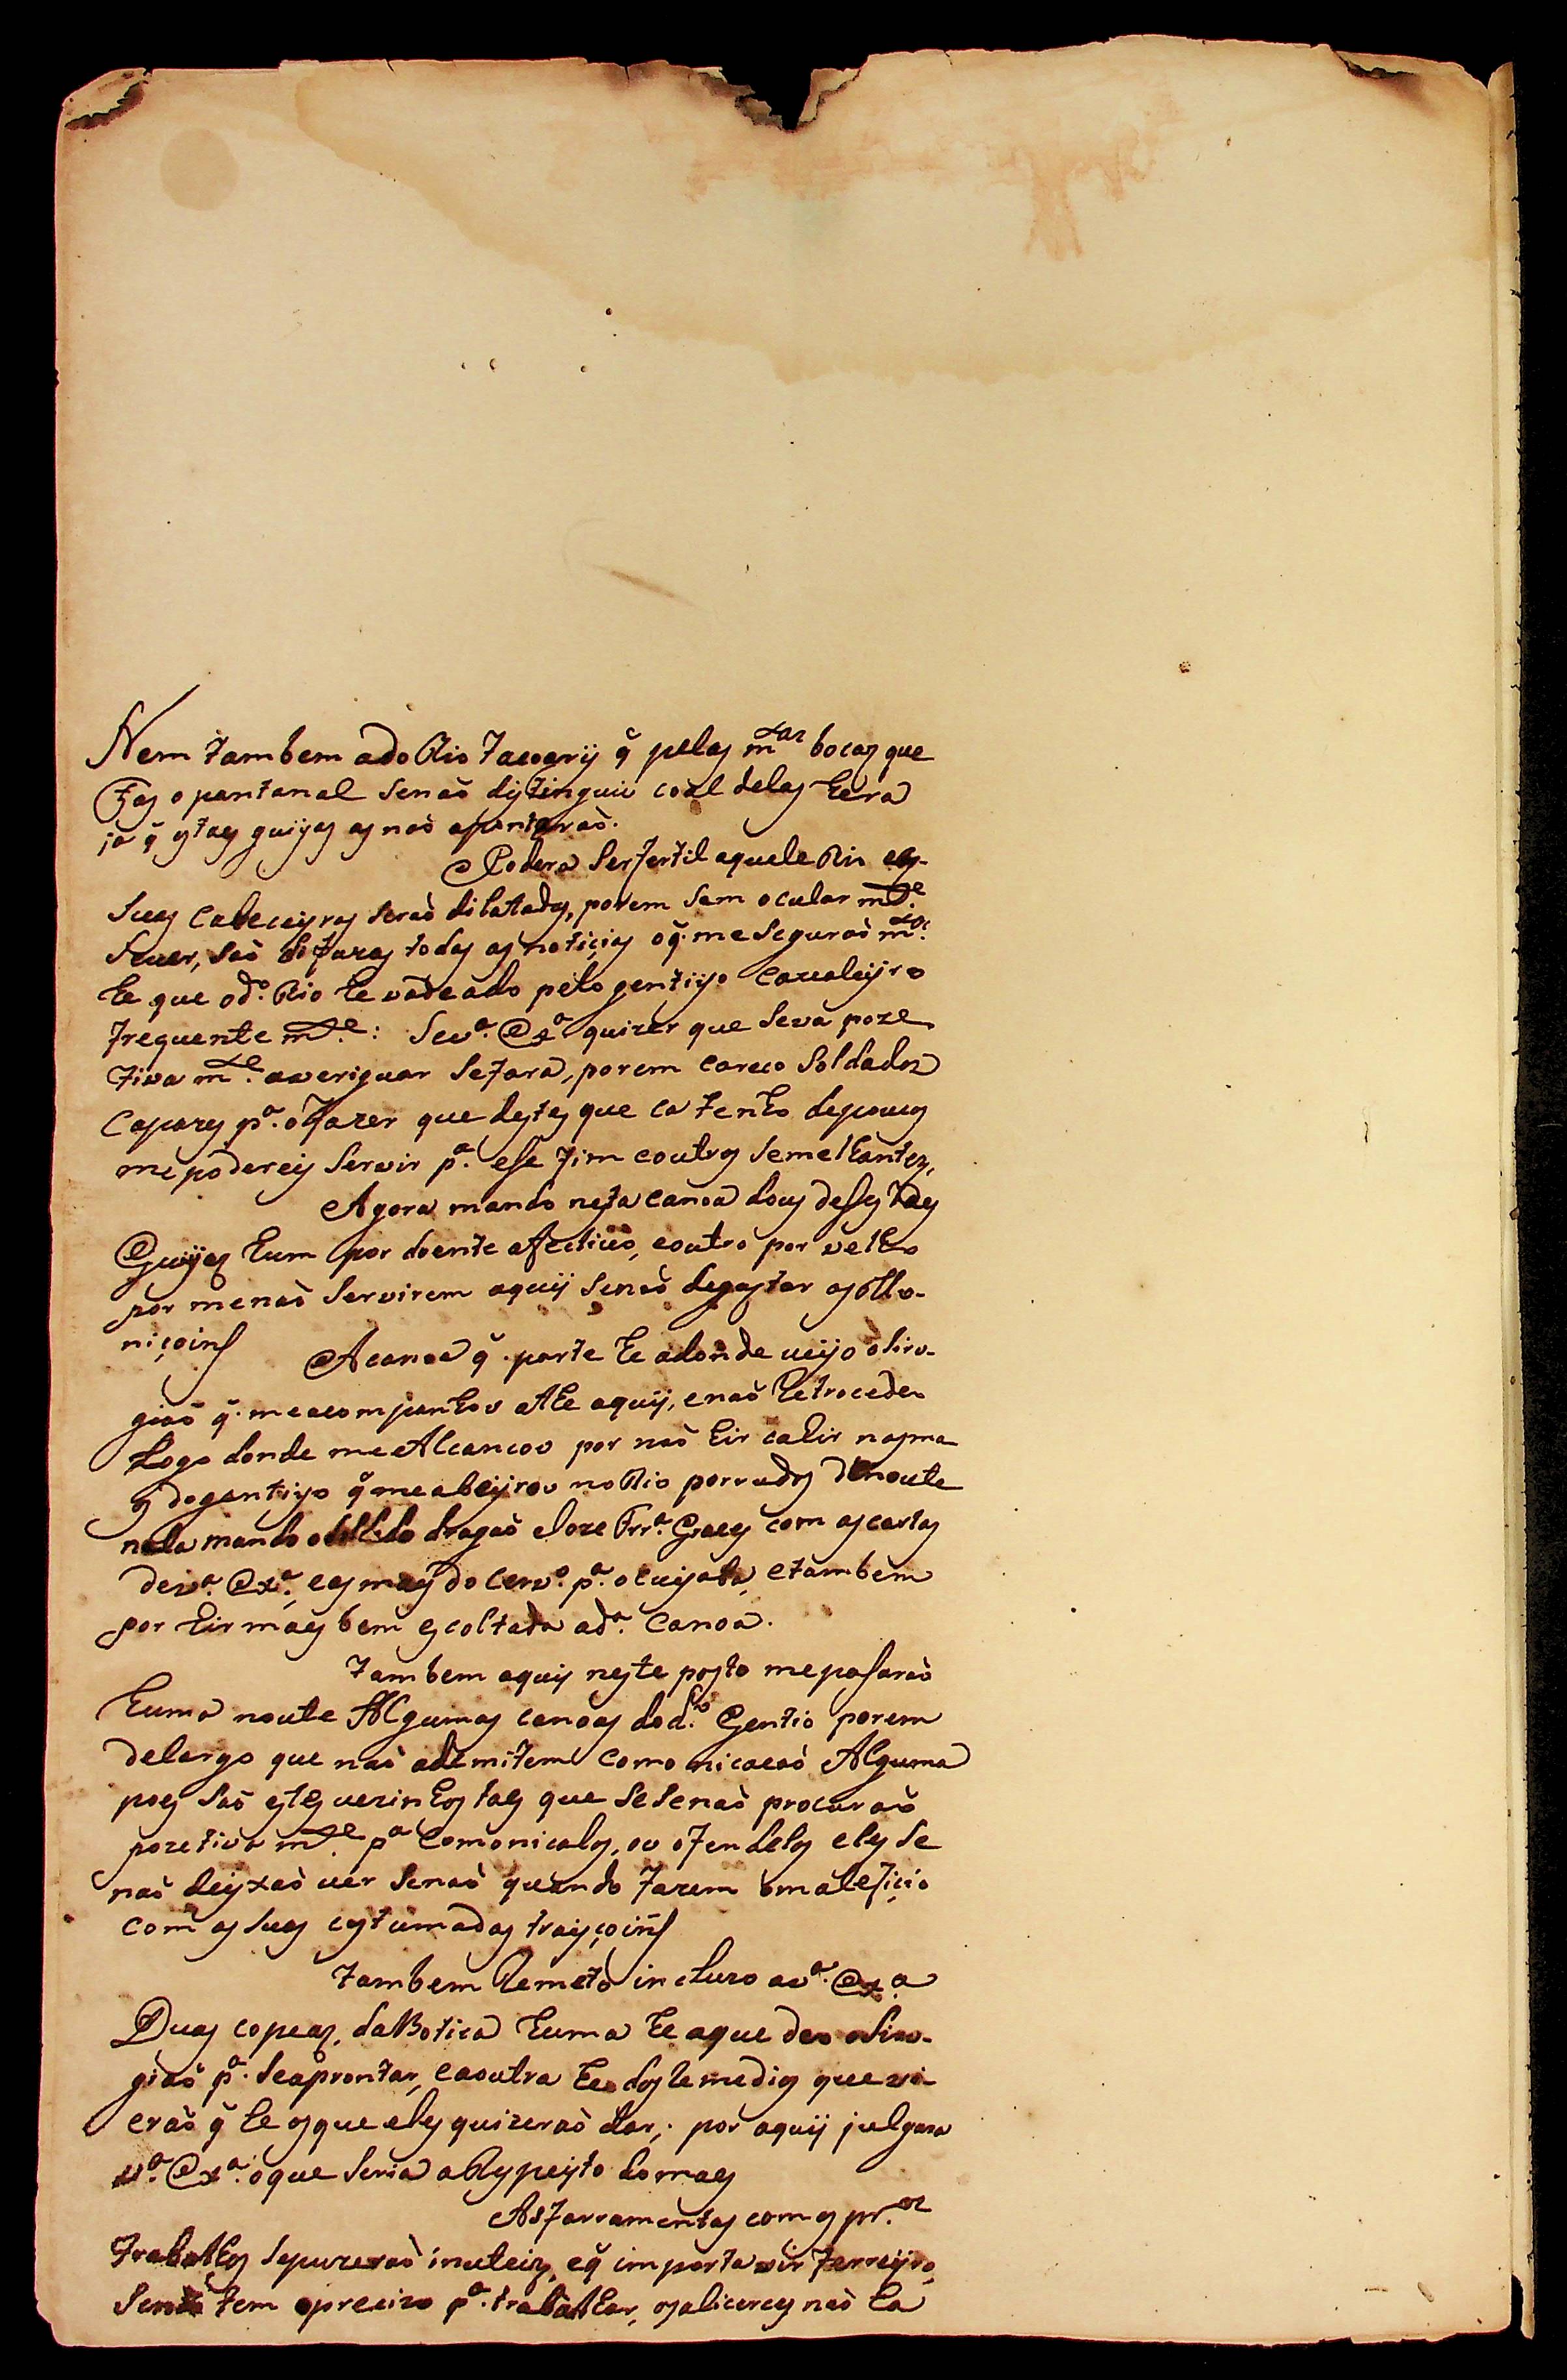 Nem tambem ado Rio Tacoarij q̃ pelas m.tas bocas que
Fas o pantanal senaõ distinguiu coal delas hera
já q̃ estas guijas as naõ apontaraõ.
Podera ser fertil aquele Rio e as
suas Cabeceijras seraõ dilatadas, porem sem ocular m.te
se uer, saõ difuzas todas as noticias o q̃ me seguraõ m.tos
he que o d.º Rio he vadeado pelo gentijo Caualeijro
frequente m.te: Se v.ª Ex.ª quizer que se vá poze
tiva m.te averiguar se fara, porem careco Soldados
Capazes p.ª o fazer que destes que ca tenho de poucos
me poderei servir p.ª ese fim e outros semelhantes,
Agora mando nesta canoa dous desestes
Guijas hum por doente afectivo, e outro por velho
por me naõ servirem aquij senaõ de gastar as Mo-
niçoins
A canoa q̃ parte he adonde veijo o Siru-
giaõ q̃ me acompanhou athe aquij, e naõ Retrocedeo
Logo donde me Alcancou por naõ hir cahir nas ma
os do gentijo q̃ me abeijrou no Rio porrudos de noute
nela mando o Soldado dragaõ Joze Frr.ª Goaes com as cartas
de v.ª Ex.ª, e as mais do serv.º p.ª o cuijaba, e tambem
por hir mais bem escoltada a d.ª Canoa.
Tambem aquij neste posto me pasaraõ
huma noute Algumas canoas do d.to Gentio porem
de largo que naõ ademitem Comonicacaõ Alguma
pois saõ estes vezinhos tais que se se naõ procuraõ
pozetiva m.te p.ª Comonicalos, ou ofendelos eles se
naõ deijxaõ uer senaõ quando fazem o maleficio
com as suas custumadas traiçoins
Tambem Remeto incluzo a v.ª Ex.ª
Duas copeas, da Botica huma he a que deo o Siru-
giaõ p.ª se aprontar, e a outra he dos Remedios que vi
eraõ q̃ he os que eles quizeraõ dar,: por aquij julgara
v.ª Ex.ª o que seria a Respeijto do mais
As farramentas com os pr.os
Trabalhos se puzeraõ inuteis, e q̃ importa vir ferreijro,
se naõ tem o precizo p.ª trabalhar, os alicerces naõ ha